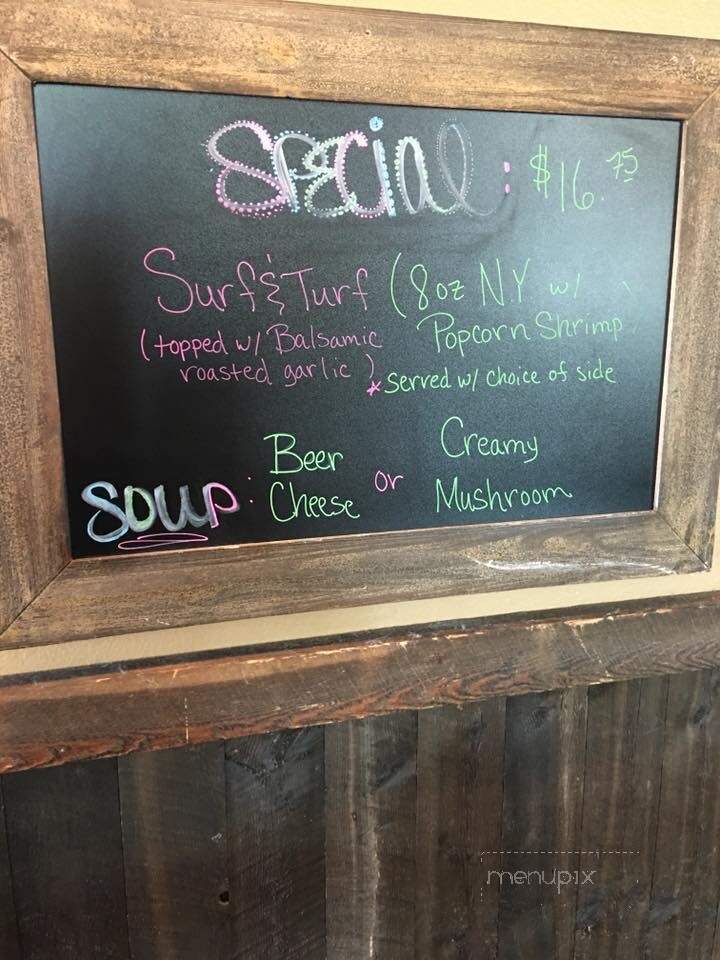 Special: $16.75
Surf & Turf (8oz N.Y w/
(topped w/ Balsamic Popcorn Shrimp
roasted garlic) *Served w/ choice of side
Beer Creamy
Soup: Cheese or Mushroom
menupix